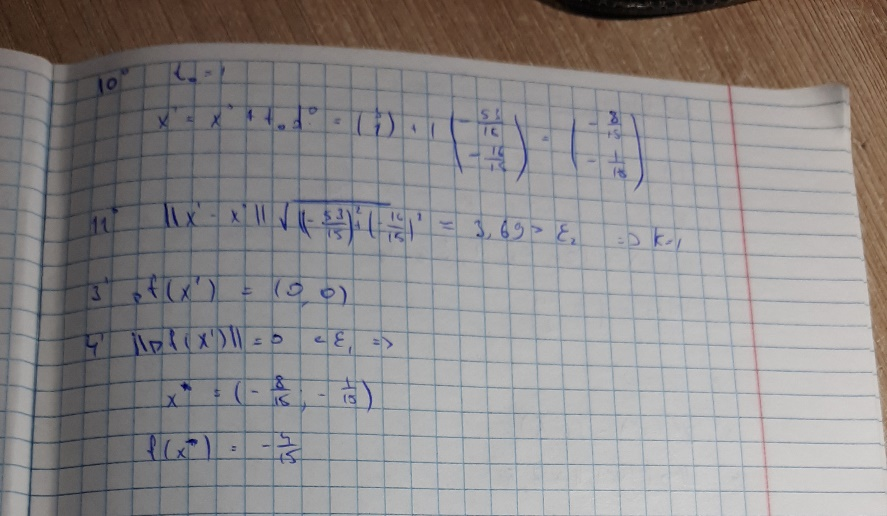 10° t₀ = 1
x¹ = x⁰ + t₀ d⁰ = (3 1) + 1 (-53/15 -16/15) = (-8/15 -1/15)
11° ||x¹ - x⁰|| √((-53/15)² + (-16/15)²) = 3,69 > ε₂ => k=1
3¹ ∇f(x¹) = (0, 0)
4¹ ||∇f(x¹)|| = 0 < ε₁ =>
x* = (-8/15; -1/15)
f(x*) = -4/15